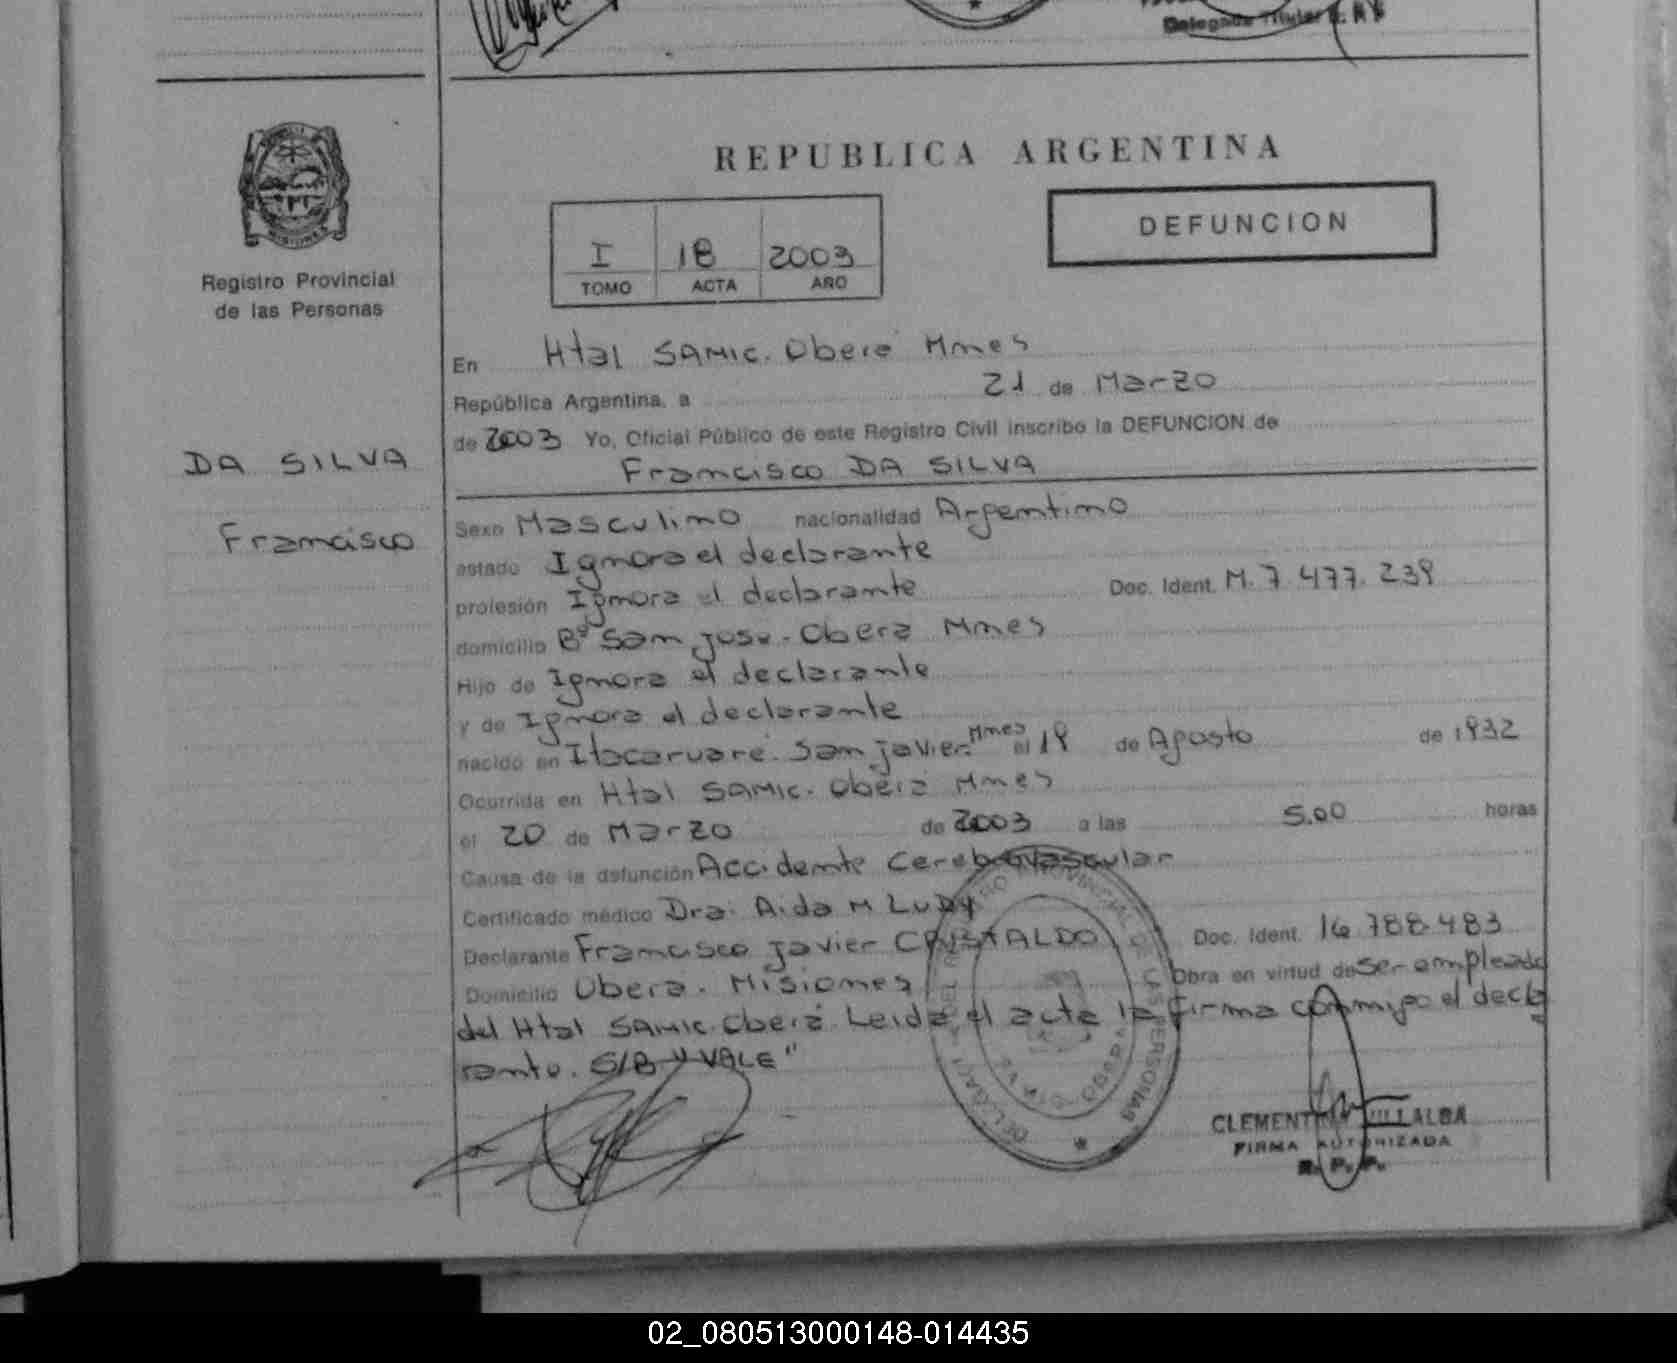 Delegada Titular R. P. P.
REPUBLICA ARGENTINA
DEFUNCION
I 18 2003
TOMO ACTA AÑO
MISIONES
Registro Provincial
de las Personas
DA SILVA
Francisco
En Htal SAMIC. Oberá Mnes
República Argentina, a 21 de Marzo
de 2003 Yo, Oficial Público de este Registro Civil inscribo la DEFUNCION de
Francisco DA SILVA
Sexo Masculino nacionalidad Argentino
estado Ignora el declarante
profesión Ignora el declarante Doc. Ident. M. 7.477.239
domicilio Bº San José. Oberá Mnes
Hijo de Ignora el declarante
y de Ignora el declarante
nacido en Itacaruaré. San Javier. Mnes el 19 de Agosto de 1932
Ocurrida en Htal SAMIC. Oberá Mnes
el 20 de Marzo de 2003 a las 5.00 horas
Causa de la defunción Accidente Cerebrovascular
Certificado médico Dra. Aida M LUDY
Declarante Francisco Javier CRISTALDO Doc. Ident. 16.788.483
Domicilio Oberá. Misiones Obra en virtud de ser empleado
del Htal SAMIC. Oberá. Leida el acta la firma conmigo el decla
rante. S/B "VALE"
REGISTRO PROVINCIAL DE LAS PERSONAS
CLEMENTINA VILLALBA
FIRMA AUTORIZADA
R. P. P.
02_080513000148-014435